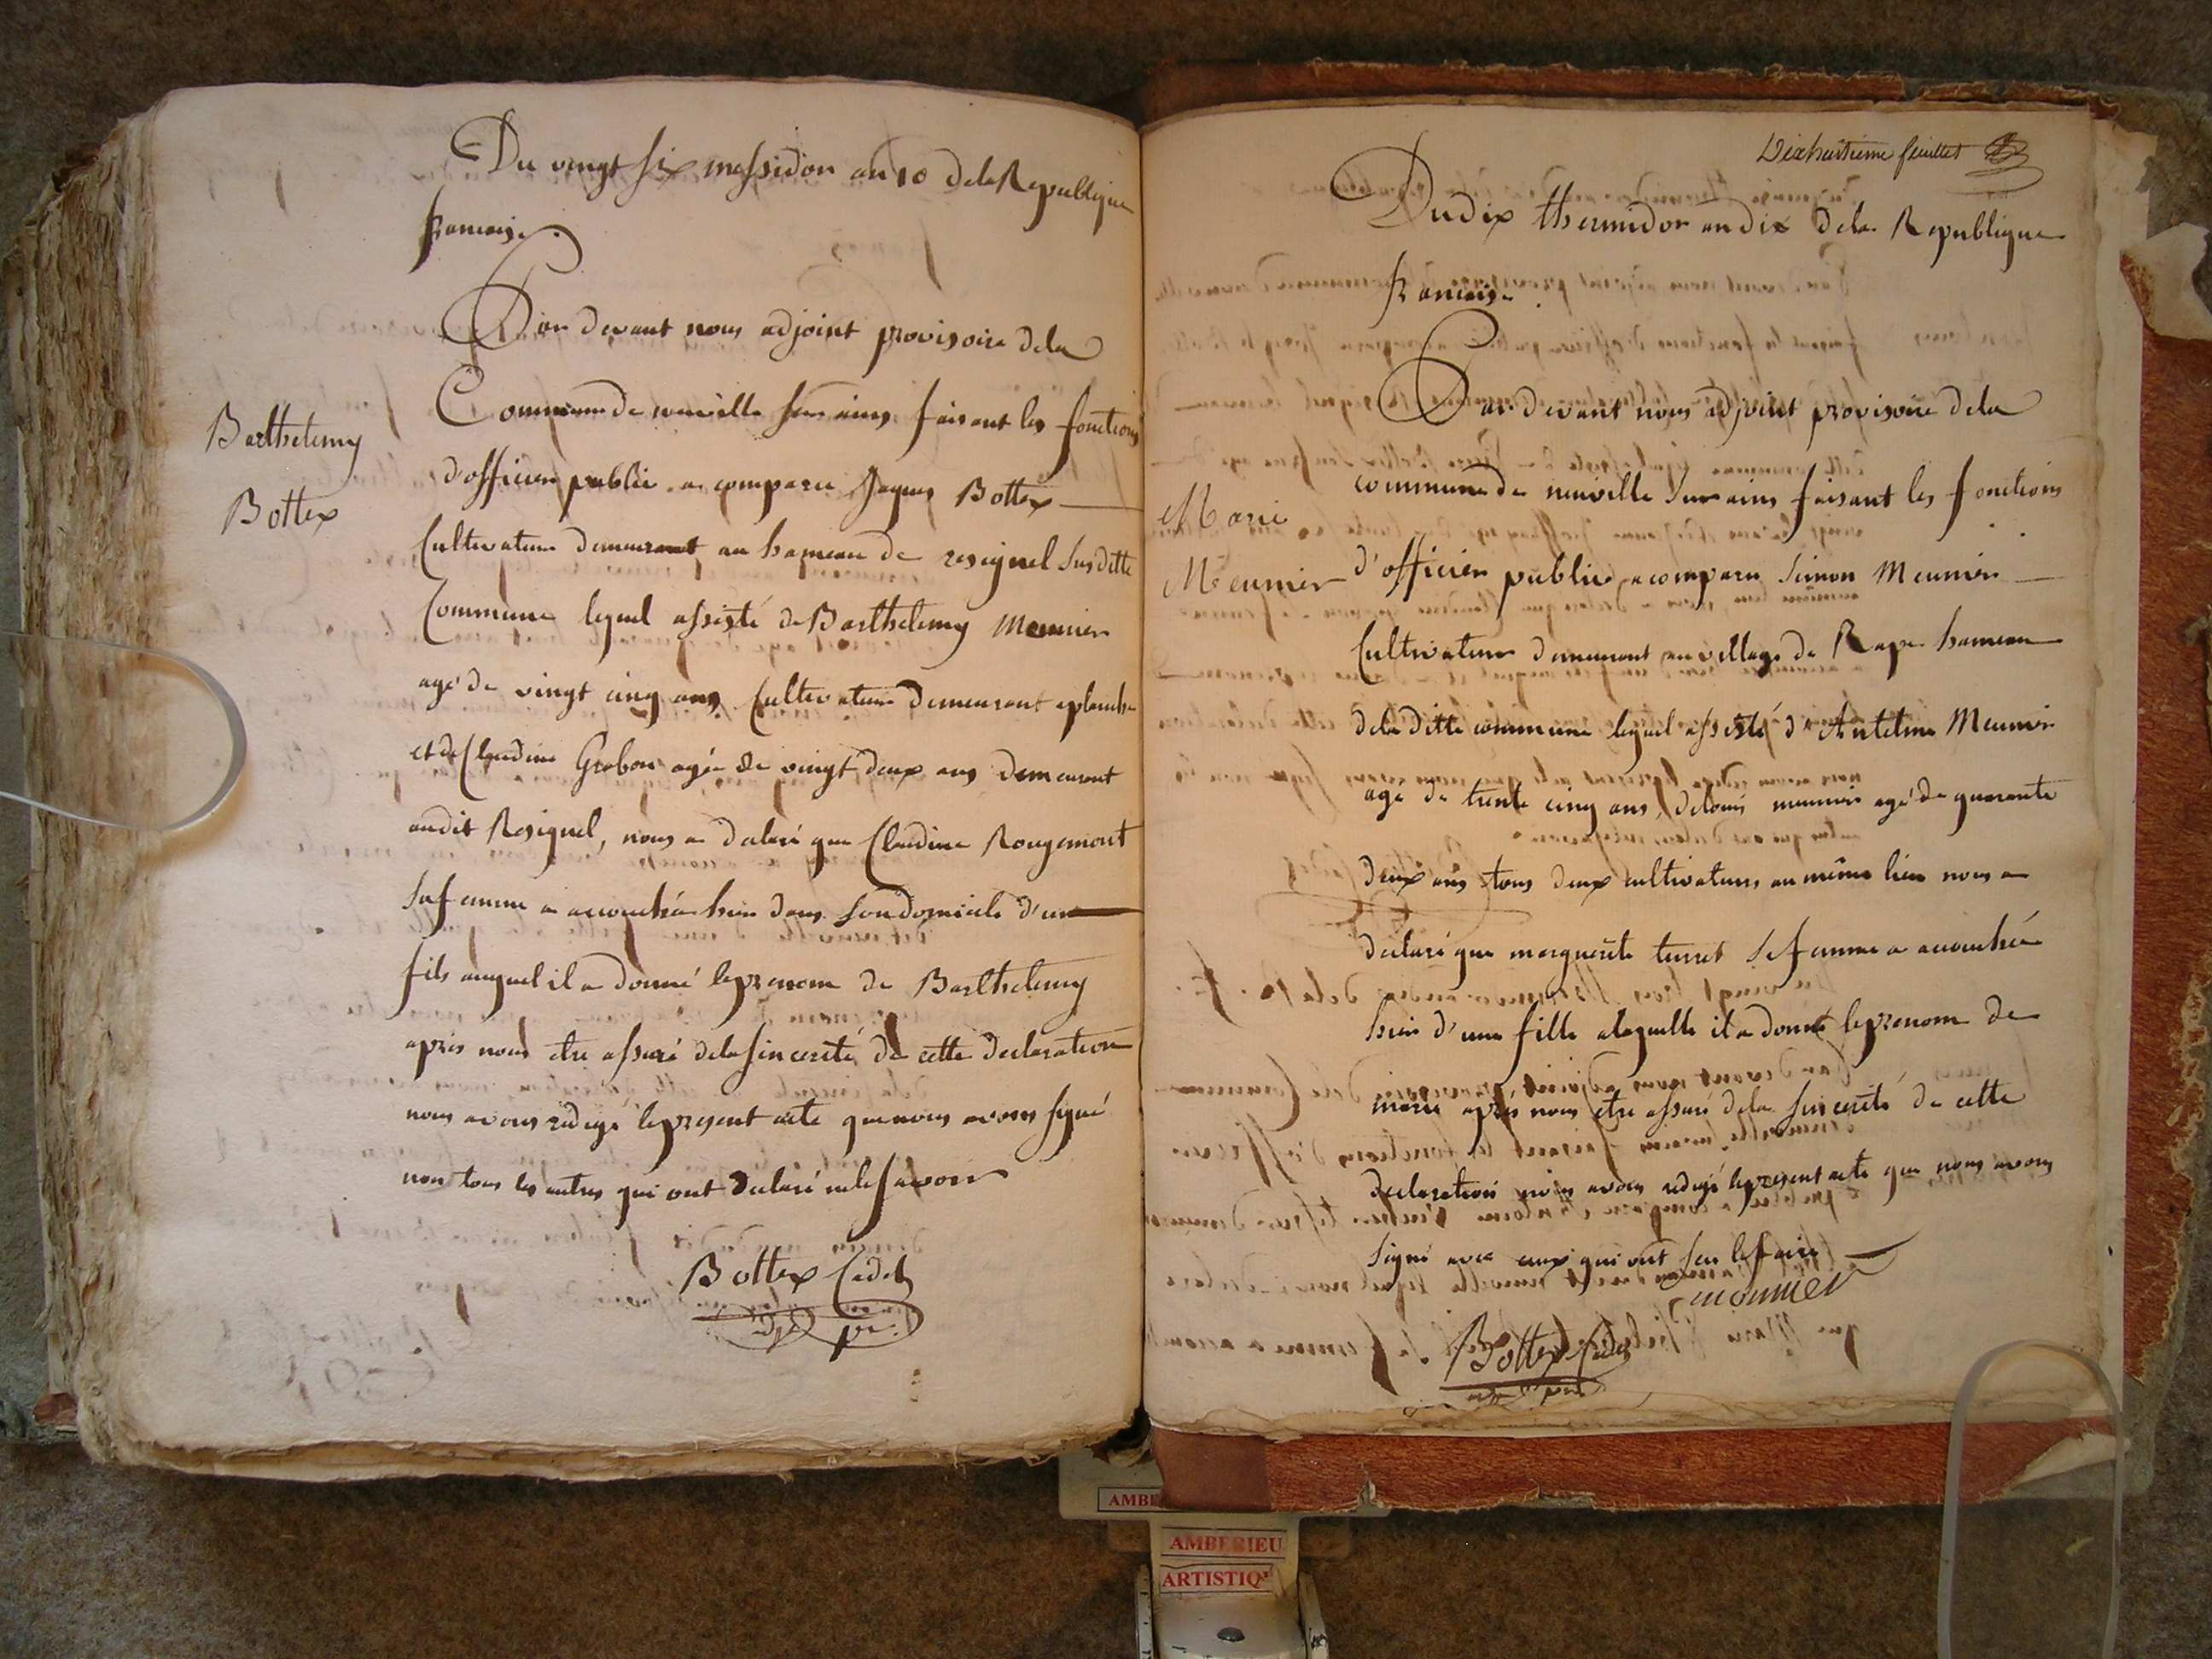 Du vingt six messidor an 10 dela Republique
francaise.
Par devant nous adjoint provisoire dela
Commune de neuville sur ains faisant les fonctions
d'officier public a comparu Jaques Bottex
Barthelemy
Bottex
Cultivateur demeurant au hameau de resignel susditte
Commune lequel assisté de Barthelemy Meunier
agé de vingt cinq ans Cultivateur demeurant a planche
et de Claudine Grabon agée de vingt deux ans demeurant
audit Resignel, nous a declaré que Claudine Rougemont
sa femme a accouchée hier dans son domicile d'un
fils auquel il a donné le prenom de Barthelemy
après nous etre assuré dela sincerité de cette declaration
nous avons redigé le present acte que nous avons signé
non tous les autres qui ont declaré ne le savoir
Bottex Cadet
adj pr.
Dixhuitieme feuillet
Du dix thermidor an dix dela Republique
francaise.
Par devant nous adjoint provisoire dela
commune de neuville sur ains faisant les fonctions
Marie
Meunier
d'officier public, a comparu Simon Meunier
Cultivateur demeurant au village de Rape hameau
dela ditte commune lequel assisté d'Antelme Meunier
agé de trente cinq ans, de louis meunier agé de quarante
deux ans tous deux cultivateurs au même lieu nous a
declaré que marguerite turret sa femme a accouchée
hier d'une fille a laquelle il a donné le prenom de
marie après nous etre assuré dela sincerité de cette
declaration nous avons redigé le present acte que nous avons
signé avec ceux qui ont seu le faire
meunier
Bottex Cadet
adj pr
AMBE
AMBERIEU
ARTISTIQ